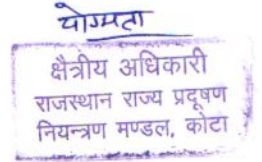 योग्यता
क्षैत्रीय अधिकारी
राजस्थान राज्य प्रदूषण
नियन्त्रण मण्डल, कोटा